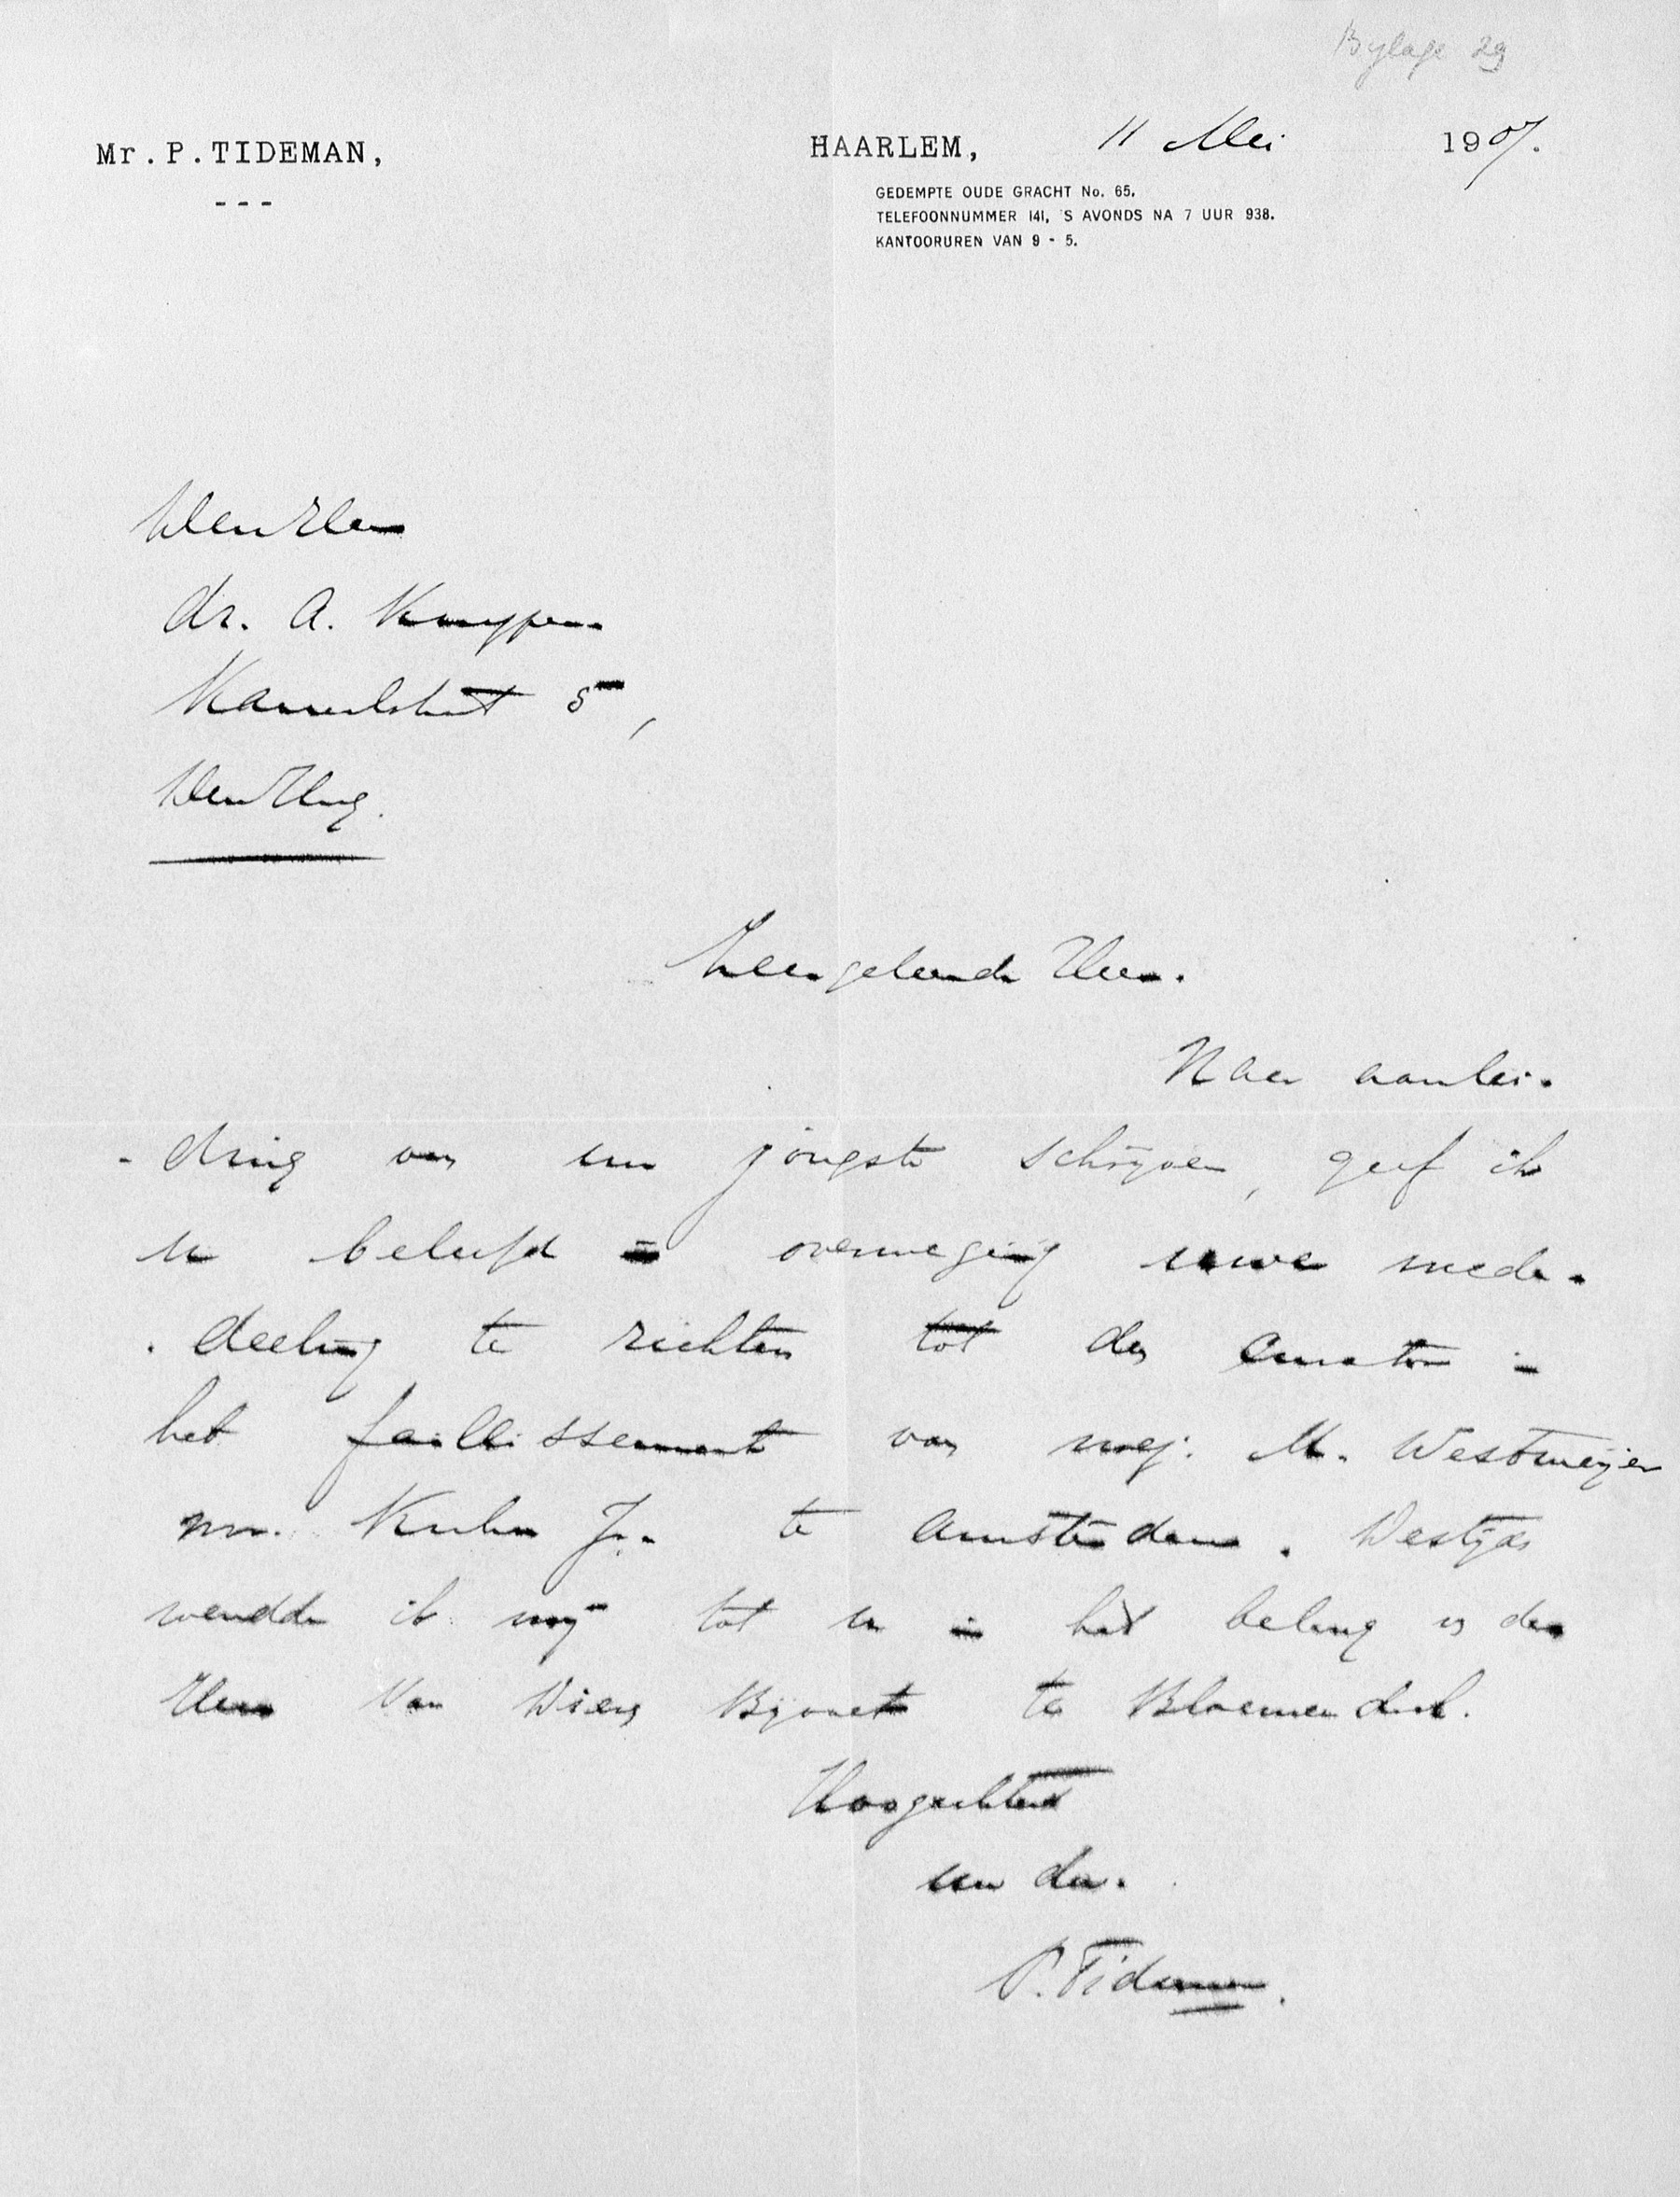 Bylage 29
Mr. P. TIDEMAN,
---
HAARLEM, 11 Mei 1907.
GEDEMPTE OUDE GRACHT No. 65.
TELEFOONNUMMER 141, 'S AVONDS NA 7 UUR 938.
KANTOORUREN VAN 9 - 5.
Den Heer
dr. A. Kuyper
Kanaalstraat 5,
Den Haag.
Zeergeleerde Heer.
Naar aanlei-
-ding van uw jongste schrijven, geef ik
u beleefd in overweging uwe mede-
-deeling te richten tot den curator in
het faillissement van mej. M. Westmeijer
mr. Kuhn Jr. te Amsterdam. Destijds
wendde ik mij tot u in het belang v. den
Heer Van Bijnest te Bloemendaal.
Hoogachtend
uw dr.
P. Tideman.